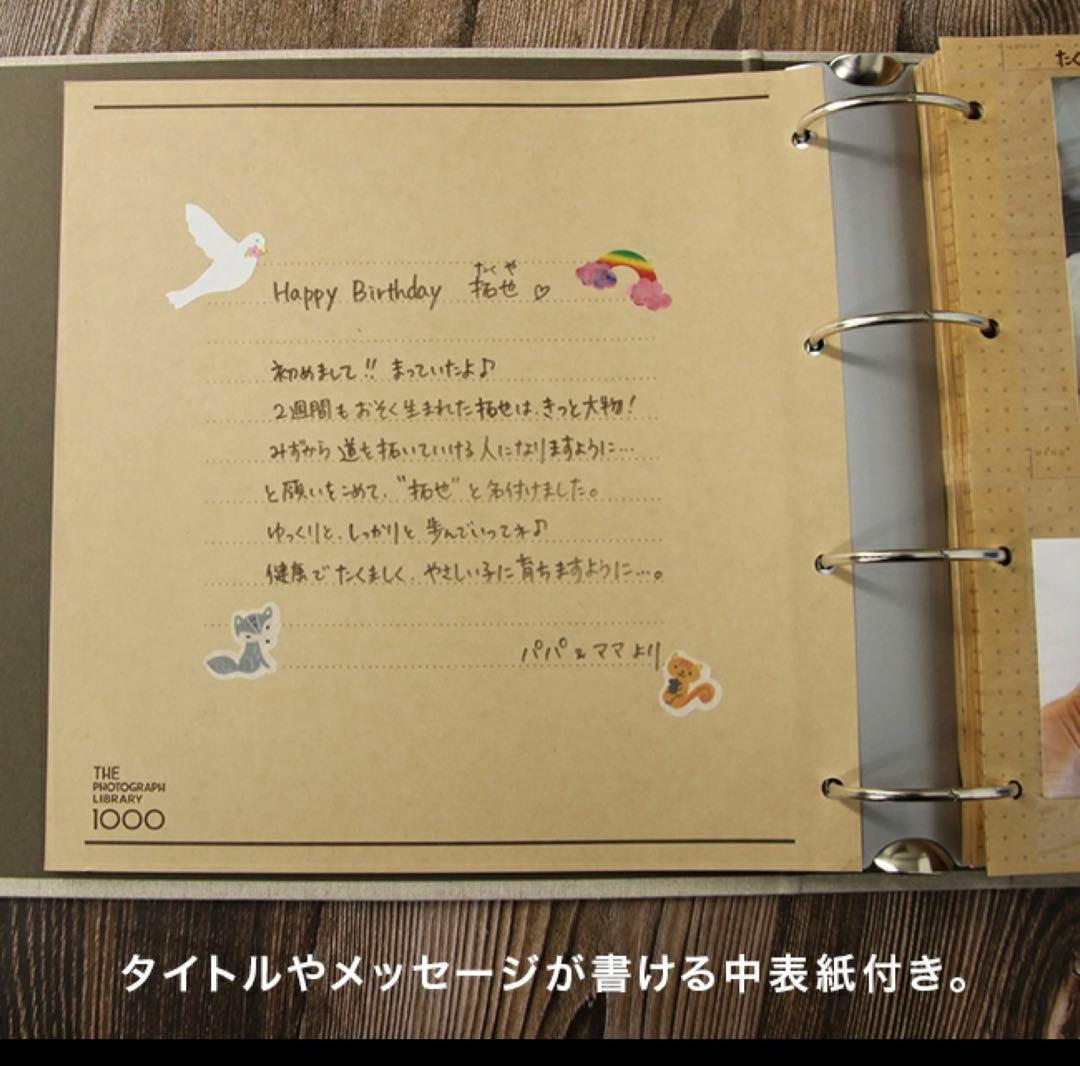 たく
たくや
Happy Birthday 拓也 ♡
初めまして!! まっていたよ♪
2週間もおそく生まれた拓也は、きっと大物!
みずから道を拓いていける人になりますように…
と願いをこめて、“拓也”と名付けました。
ゆっくりと、しっかりと歩んでいってネ♪
健康でたくましく、やさしい子に育ちますように…。
パパ&ママより
THE
PHOTOGRAPH
LIBRARY
1000
タイトルやメッセージが書ける中表紙付き。